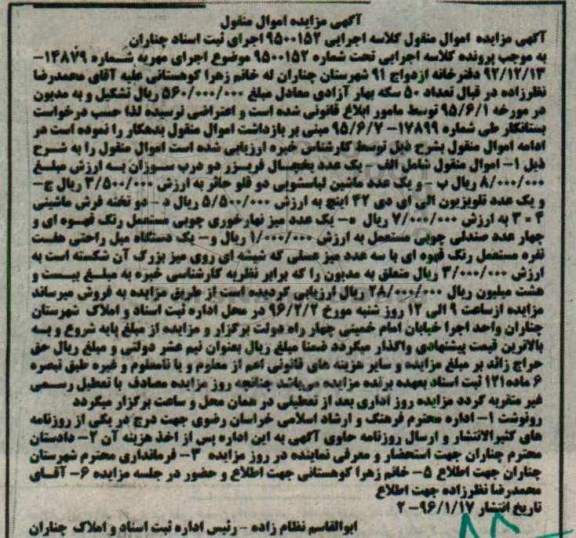 آگهی مزایده اموال منقول
آگهی مزایده اموال منقول کلاسه اجرایی ۹۵۰۰۱۵۲ اجرای ثبت اسناد چناران
به موجب پرونده کلاسه اجرایی تحت شماره ۹۵۰۰۱۵۲ موضوع اجرای مهریه شماره ۱۳۸۷۹-
۹۲/۱۲/۱۳ دفترخانه ازدواج ۹۱ شهرستان چناران له خانم زهرا کوهستانی علیه آقای محمدرضا
نظرزاده در قبال تعداد ۵۰ سکه بهار آزادی معادل مبلغ ۵۶۰/۰۰۰/۰۰۰ ریال تشکیل و به مدیون
در مورخه ۹۵/۶/۱ توسط مامور ابلاغ قانونی شده است و اعتراضی نرسیده لذا حسب درخواست
بستانکار طی شماره ۱۷۸۹۹-۹۵/۶/۷ مبنی بر بازداشت اموال منقول بدهکار را نموده است در
ادامه اموال منقول بشرح ذیل توسط کارشناس خبره ارزیابی شده است اموال منقول را به شرح
ذیل ۱- اموال منقول شامل الف - یک عدد یخچال فریزر دو درب سوزان به ارزش مبلغ
۸/۰۰۰/۰۰۰ ریال ب - و یک عدد ماشین لباسشویی دو قلو حائر به ارزش ۳/۵۰۰/۰۰۰ ریال ج-
و یک عدد تلویزیون ال ای دی ۴۲ اینچ به ارزش ۵/۵۰۰/۰۰۰ ریال د - دو تخته فرش ماشینی
۳ × ۴ به ارزش ۷/۰۰۰/۰۰۰ ریال ه- یک عدد میز نهارخوری چوبی مستعمل رنگ قهوه ای و
چهار عدد صندلی چوبی مستعمل به ارزش ۱/۰۰۰/۰۰۰ ریال و- یک دستگاه مبل راحتی هفت
نفره مستعمل رنگ قهوه ای با سه عدد میز عسلی که شیشه ای روی میز بزرگ آن شکسته است به
ارزش ۳/۰۰۰/۰۰۰ ریال متعلق به مدیون را که برابر نظریه کارشناسی خبره به مبلغ بیست و
هشت میلیون ریال ۲۸/۰۰۰/۰۰۰ ریال ارزیابی گردیده است از طریق مزایده به فروش میرساند
مزایده ازساعت ۹ الی ۱۲ روز شنبه مورخ ۹۶/۲/۲ در محل اداره ثبت اسناد و املاک شهرستان
چناران واحد اجرا خیابان امام خمینی چهار راه دولت برگزار و مزایده از مبلغ پایه شروع و به
بالاترین قیمت پیشنهادی واگذار میگردد ضمنا مبلغ ریال بعنوان نیم عشر دولتی و مبلغ ریال حق
حراج زائد بر مبلغ مزایده و سایر هزینه های قانونی اعم از معلوم و یا نامعلوم و غیره طبق تبصره
۶ ماده۱۲۱ ثبت اسناد بعهده برنده مزایده میباشد چنانچه روز مزایده مصادف با تعطیل رسمی
غیر متقربه گردد مزایده روز اداری بعد از تعطیلی در همان محل و ساعت برگزار میگردد
رونوشت ۱- اداره محترم فرهنگ و ارشاد اسلامی خراسان رضوی جهت درج در یکی از روزنامه
های کثیرالانتشار و ارسال روزنامه حاوی آگهی به این اداره پس از اخذ هزینه آن ۲- دادستان
محترم چناران جهت استحضار و معرفی نماینده در روز مزایده ۳- فرمانداری محترم شهرستان
چناران جهت اطلاع ۵- خانم زهرا کوهستانی جهت اطلاع و حضور در جلسه مزایده ۶- آقای
محمدرضا نظرزاده جهت اطلاع
تاریخ انتشار ۹۶/۱/۱۷- ۲
ابوالقاسم نظام زاده - رئیس اداره ثبت اسناد و املاک چناران